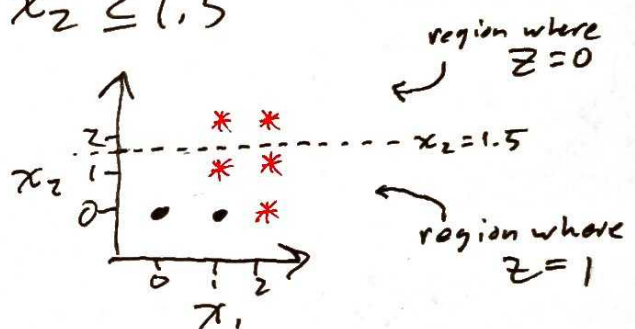 x₂ ≤ 1.5
region where
z=0
2
x₂=1.5
x₂
1
0
region where
z=1
0 1 2
x₁